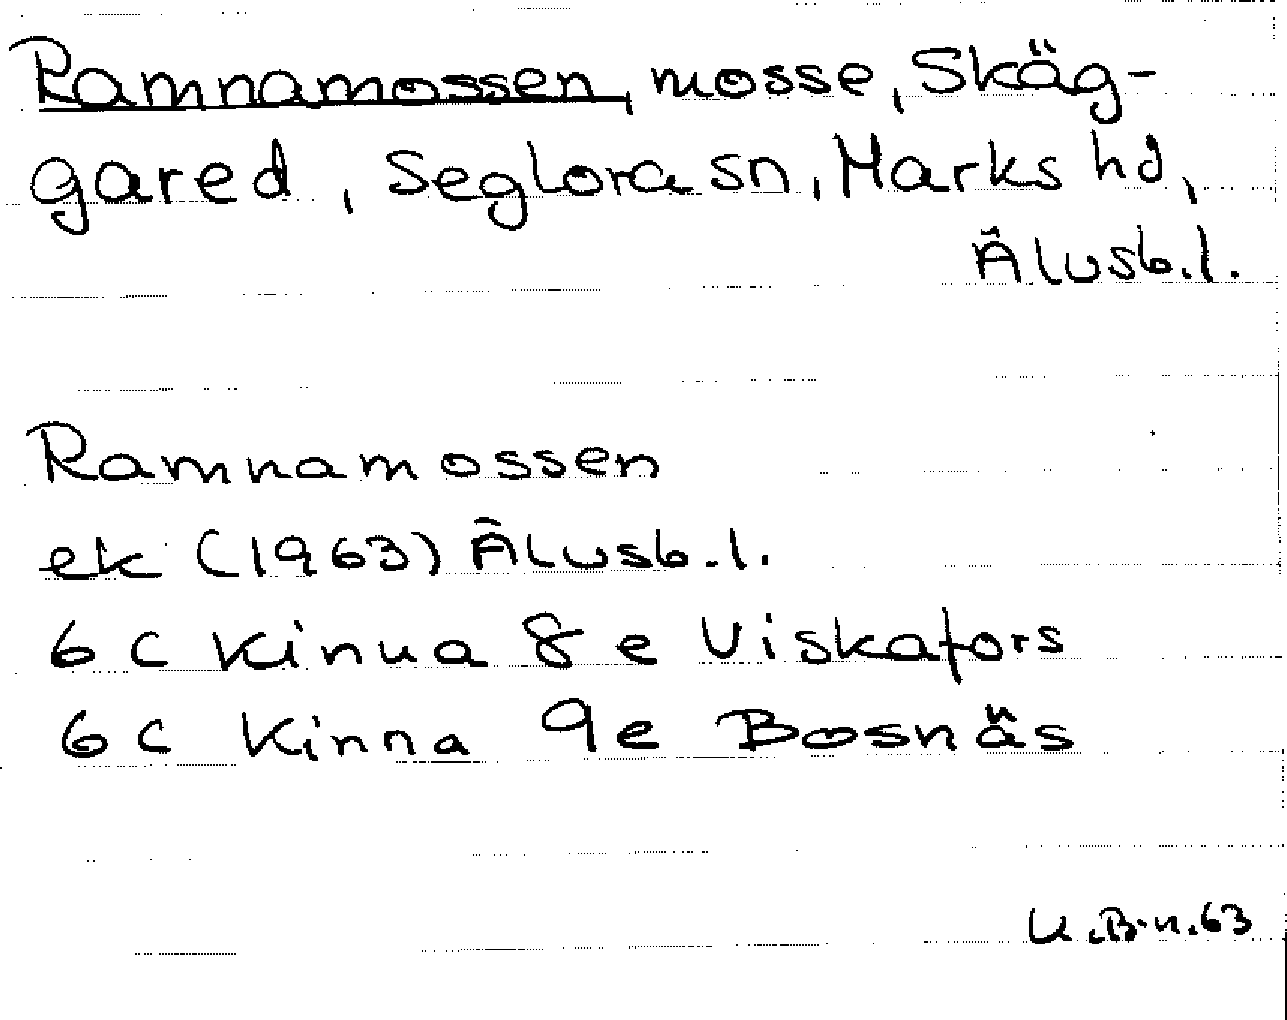 Ramnamossen, mosse, Skäg-
gared, Seglora sn, Marks hd,
Älvsb.l.
Ramnamossen
ek (1963) Älvsb.l.
6 C Kinna 8 e Viskafors
6 C Kinna 9e Bosnäs
U.B-n.63